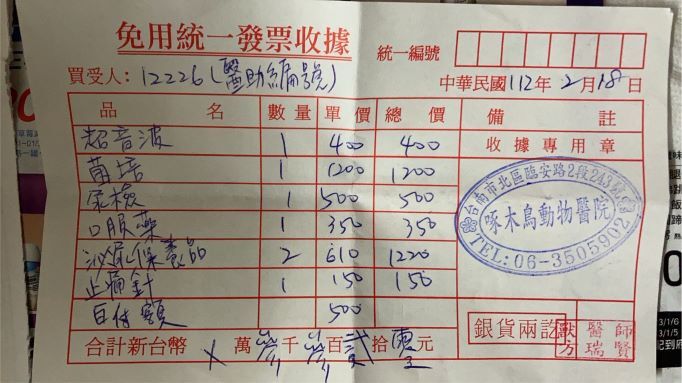 免用統一發票收據
統一編號
買受人：12226(醫助編號)
中華民國112年2月18日
品名 數量 單價 總價 備註
超音波 1 400 400
收據專用章
菌培 1 1200 1200
尿檢 1 500 500
口服藥 1 350 350
泌尿保養品 2 610 1220
止痛針 1 150 150
自付額 500
台南市北區臨安路2段243號
啄木鳥動物醫院
TEL:06-3505902
銀貨兩訖
獸醫師
方瑞賢
合計新台幣 萬 千 百 貳拾 零元